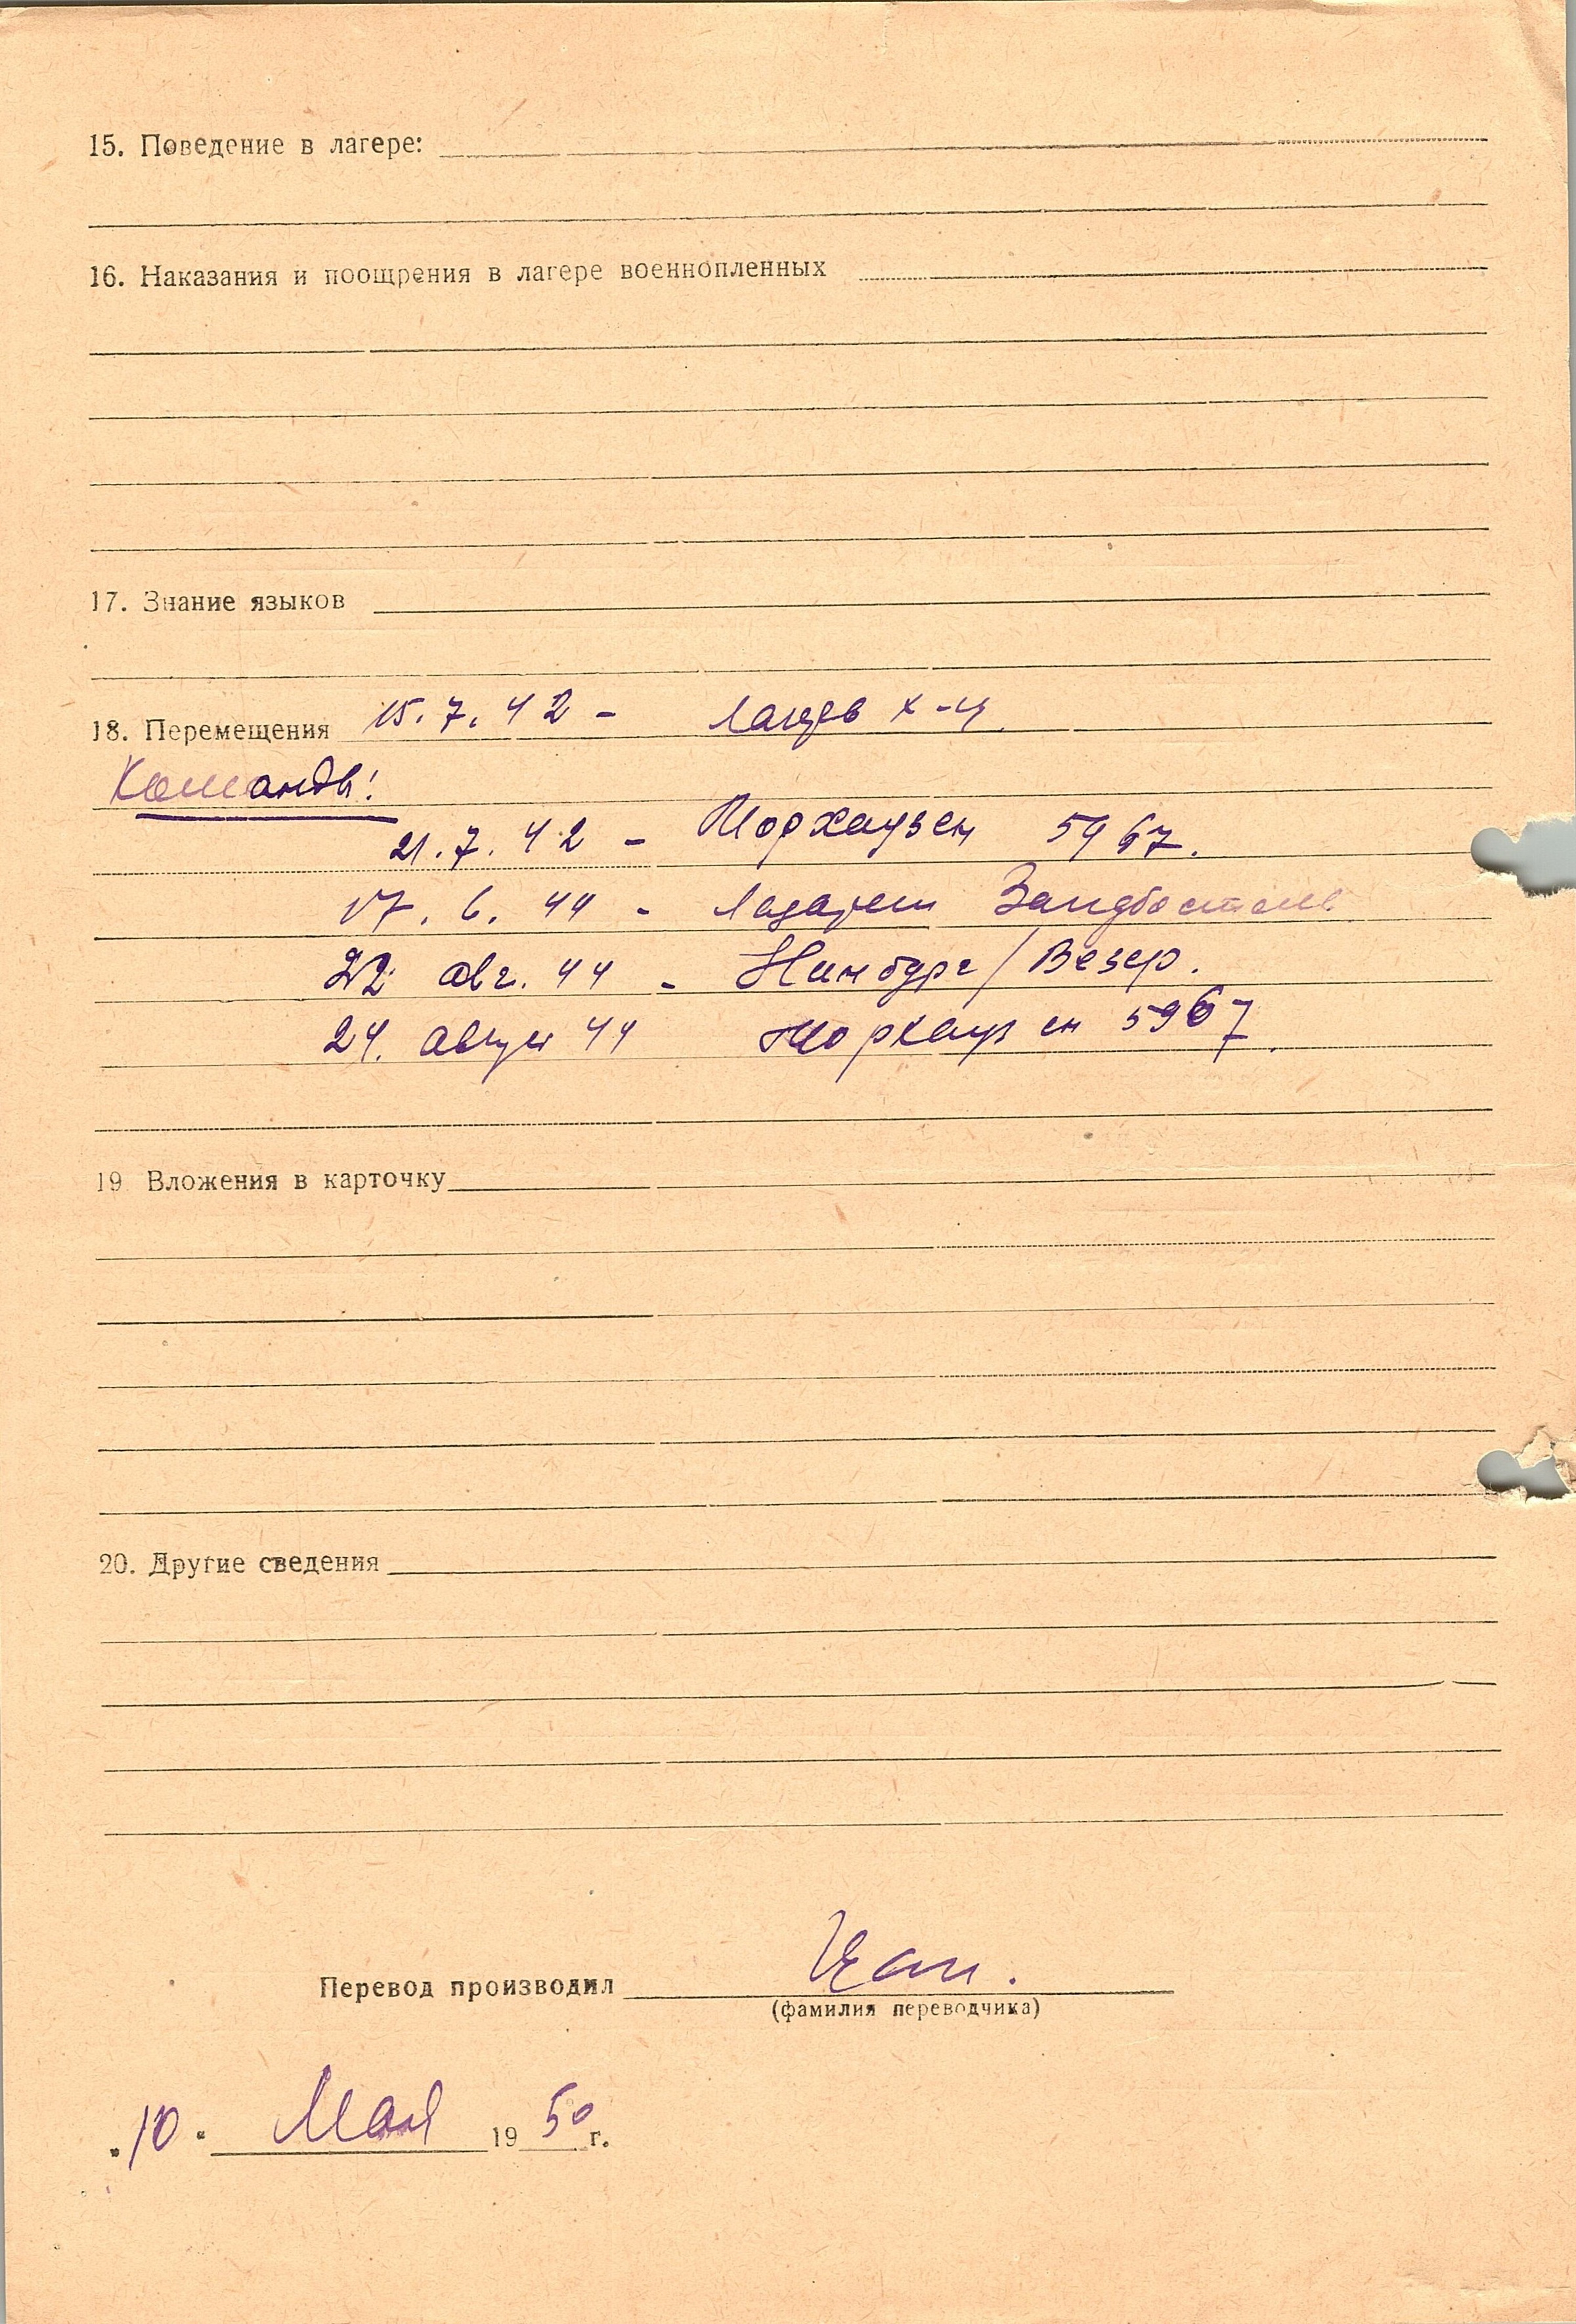 15. Поведение в лагере:
16. Наказания и поощрения в лагере военнопленных
17. Знание языков
18. Перемещения 15.7.42 - лагерь X-ц
Команды:
21.7.42 - Морхаузен 5967.
17.6.44 - Лазарет Зандбостель
22 авг. 44 - Нинбург/Везер.
24. август 44 Морхаузен 5967.
19 Вложения в карточку
20. Другие сведения
Перевод производил
(фамилия переводчика)
"10" Мая 1950 г.